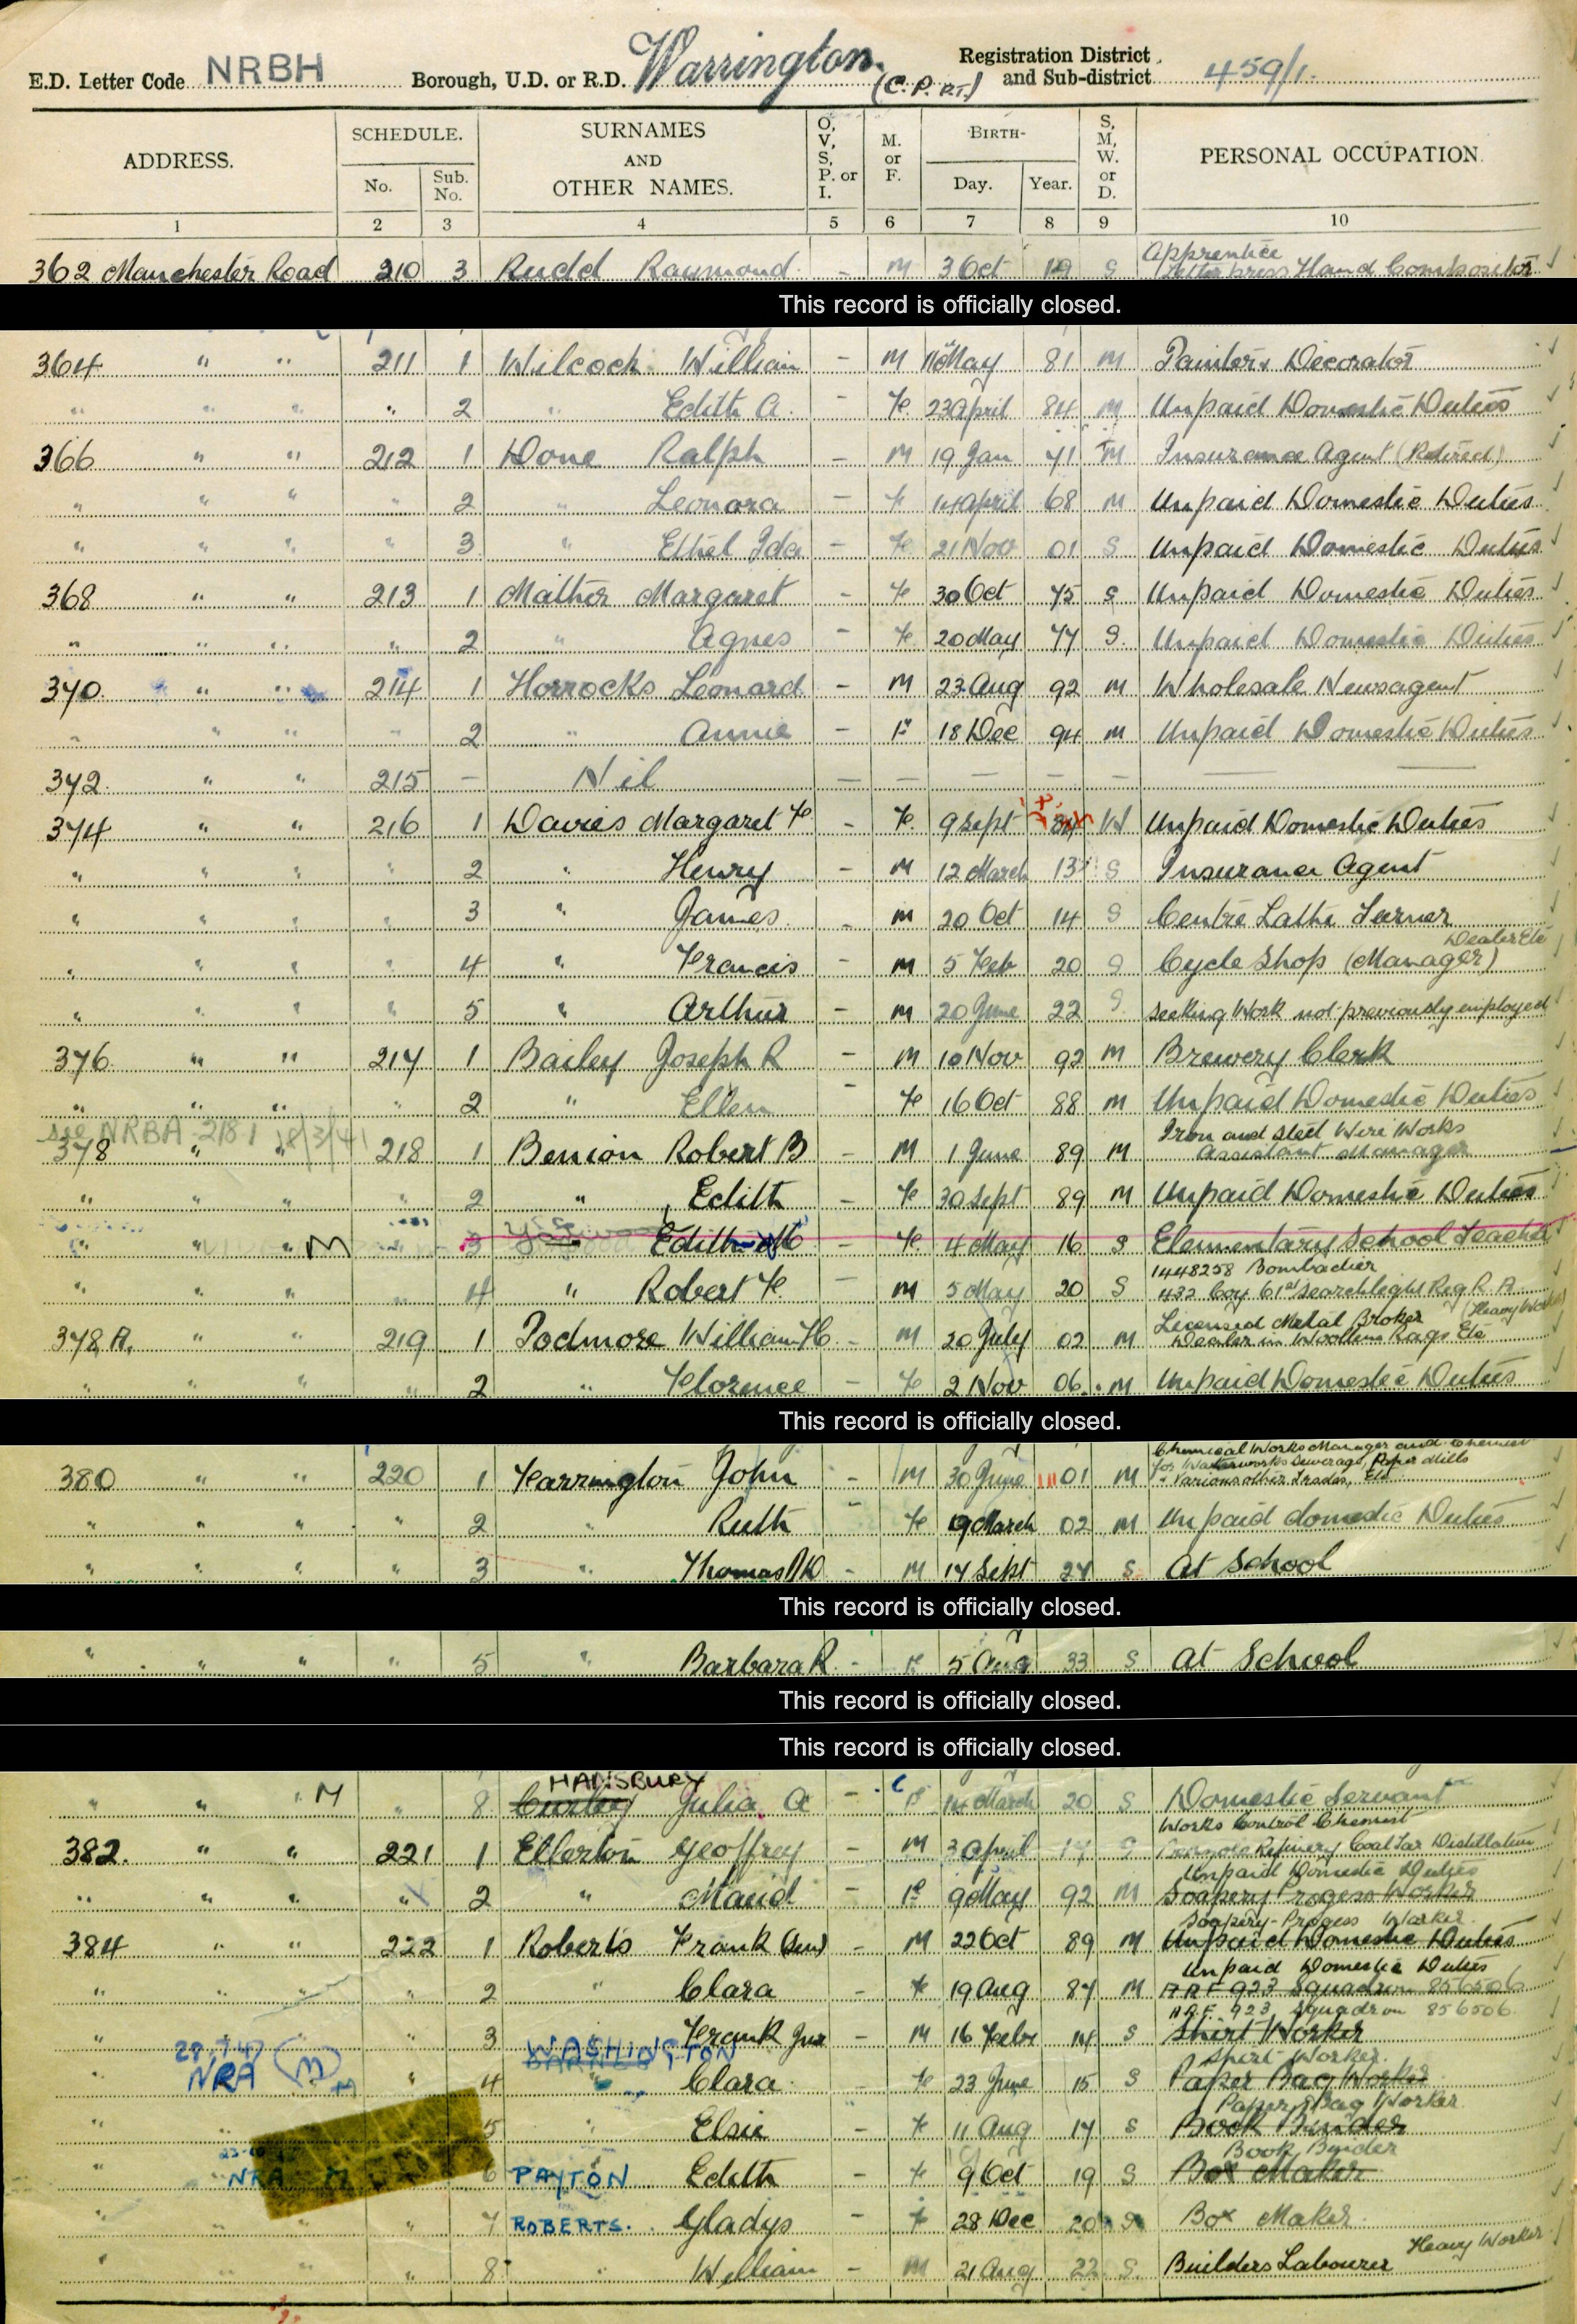 E.D. Letter Code NRBH Borough, U.D. or R.D. Warrington. (C.P. PT.) Registration District and Sub-district 459/1.
ADDRESS. SCHEDULE. No. Sub. No. SURNAMES AND OTHER NAMES. O, V, S, P. or I. M. or F. BIRTH- Day. Year. S, M, W. or D. PERSONAL OCCUPATION.
1 2 3 4 5 6 7 8 9 10
362 Manchester Road 210 3 Rudd Raymond - M 3 Oct 19 S Apprentice Letterpress Hand Compositor
This record is officially closed.
364 " " 211 1 Wilcock William - M May 81 M Painter & Decorator
" " " " 2 " Edith A. - Fe 23 April 84 M Unpaid Domestic Duties
366 " " 212 1 Done Ralph - M 19 Jan 71 M Insurance Agent (Retired)
" " " " 2 " Leonora - Fe 14 April 68 M Unpaid Domestic Duties
" " " " 3 " Ethel Ida - Fe 21 Nov 01 S Unpaid Domestic Duties
368 " " 213 1 Mather Margaret - Fe 30 Oct 75 S Unpaid Domestic Duties
" " " " 2 " Agnes - Fe 20 May 77 S. Unpaid Domestic Duties
370. " " 214 1 Horrocks Leonard - M 23 Aug 92 M Wholesale Newsagent
" " " " 2 " Annie - Fe 18 Dec 94 M Unpaid Domestic Duties
372. " " 215 - Nil - - - - - - -
374 " " 216 1 Davies Margaret F - Fe. 9 Sept W Unpaid Domestic Duties
" " " " 2 " Henry - M 12 March 13 S Insurance Agent
" " " " 3 " James. - M 20 Oct 14 S Centre Lathe Turner
" " " " 4 " Francis - M 5 Feb 20 S Cycle Shop (Manager) Dealer Etc
" " " " 5 " Arthur - M 20 June 22 S Seeking Work not previously employed
376. " " 217 1 Bailey Joseph R - M 10 Nov 92 M Brewery Clerk
" " " " 2 " Ellen - Fe 16 Oct 88 M Unpaid Domestic Duties
see NRBA 218 1 18/3/41
378 " " 218 1 Bennion Robert B - M 1 June 89 M Iron and Steel Wire Works Assistant Manager
" " " " 2 " Edith - Fe 30 Sept 89 M Unpaid Domestic Duties
" " " M " 3 Edith M - Fe. 4 May 16 S Elementary School Teacher
" " " " 4 " Robert F. - M 5 May 20 S 1448258 Bombadier 432 Coy 61st Searchlight Reg R.A.
378 A. " " 219 1 Podmore William H. - M 20 July 02 M Licensed Metal Broker Dealer in Woollen Rags Etc (Heavy Worker)
" " " " 2 " Florence - Fe 2 Nov 06. M Unpaid Domestic Duties
This record is officially closed.
380 " " 220 1 Farrington John - M 30 June 01 M Chemical Works Manager and Chemist for Waterworks Sewerage, Paper Mills & Various other Trades, Etc
" " " " 2 " Ruth - Fe 19 March 02 M Unpaid domestic Duties
" " " " 3 " Thomas - M 17 Sept 27 S At School
This record is officially closed.
" " " " 5 " Barbara R. - F 5 Aug 33 S At School
This record is officially closed.
This record is officially closed.
HANSBURY
" " " M " 8 Curley Julia A - F 14 March 20 S Domestic Servant
382. " " 221 1 Ellerton Geoffrey - M 3 April 17 S Works Control Chemist Refinery Coal Tar Distillation
" " " " 2 " Maud - Fe 9 May 92 M Unpaid Domestic Duties Soapery Progess Worker
384 " " 222 1 Roberts Frank (Sen) - M 22 Oct 89 M Soapery-Progess Worker Unpaid Domestic Duties
" " " " 2 " Clara - Fe 19 Aug 87 M Unpaid Domestic Duties 923 Squadron 856506
" " " " 3 " Frank Jnr - M 16 Feb 14 S 923 Squadron 856506 Shirt Worker
28.7.47 NRA (M) " 4 WASHINGTON " Clara. - Fe 23 June 15 S Shirt Worker. Paper Bag Worker
" " " " 5 " Elsie - Fe 11 Aug 17 S Paper Bag Worker Book Binder
" NRA M 6 PAYTON Edith - Fe 9 Oct 19 S Book Binder Box Maker
" " " " 7 ROBERTS. Gladys - F 28 Dec 20 S Box Maker.
" " " " 8 " William - M 21 Aug 22 S. Builders Labourer Heavy Worker